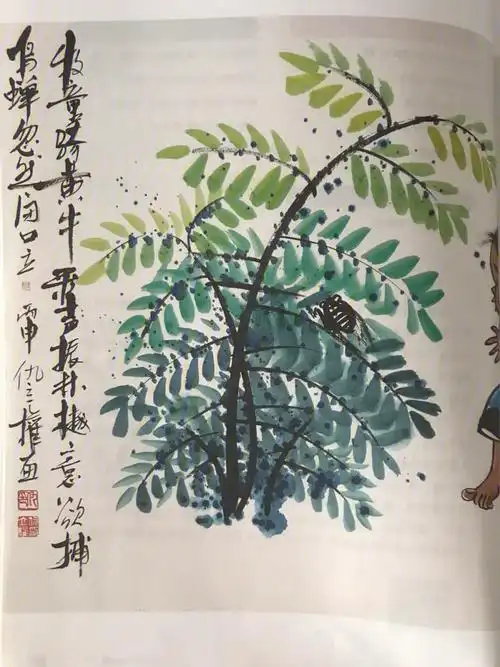 牧童骑黄牛歌声振林樾意欲捕
鸣蝉忽然闭口立 權画